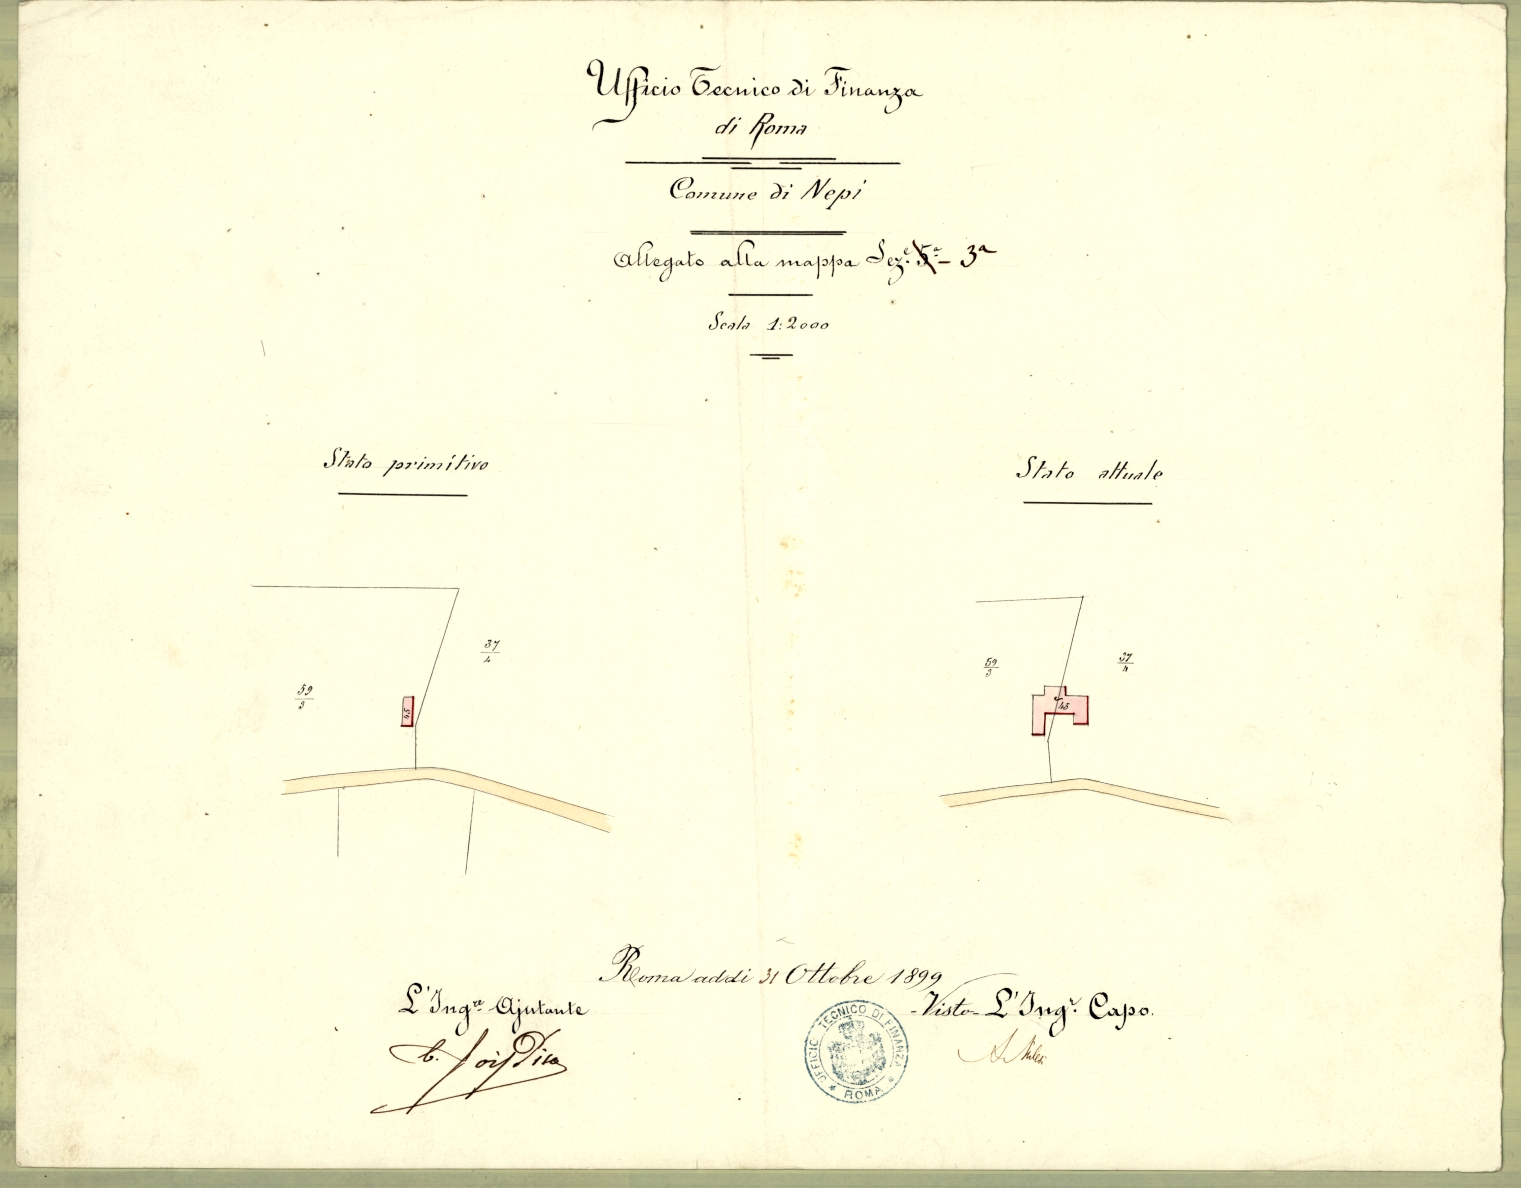 Ufficio Tecnico di Finanza
di Roma
Comune di Nepi
Allegato alla mappa Sez.e 5a - 3a
Scala 1:2000
Stato primitivo
Stato attuale
37/4
59/3
45
59/3
37/4
45
Roma addì 31 Ottobre 1899
L'Ing.re Ajutante
Visto - L'Ing.r Capo.
UFFICIO TECNICO DI FINANZA
ROMA